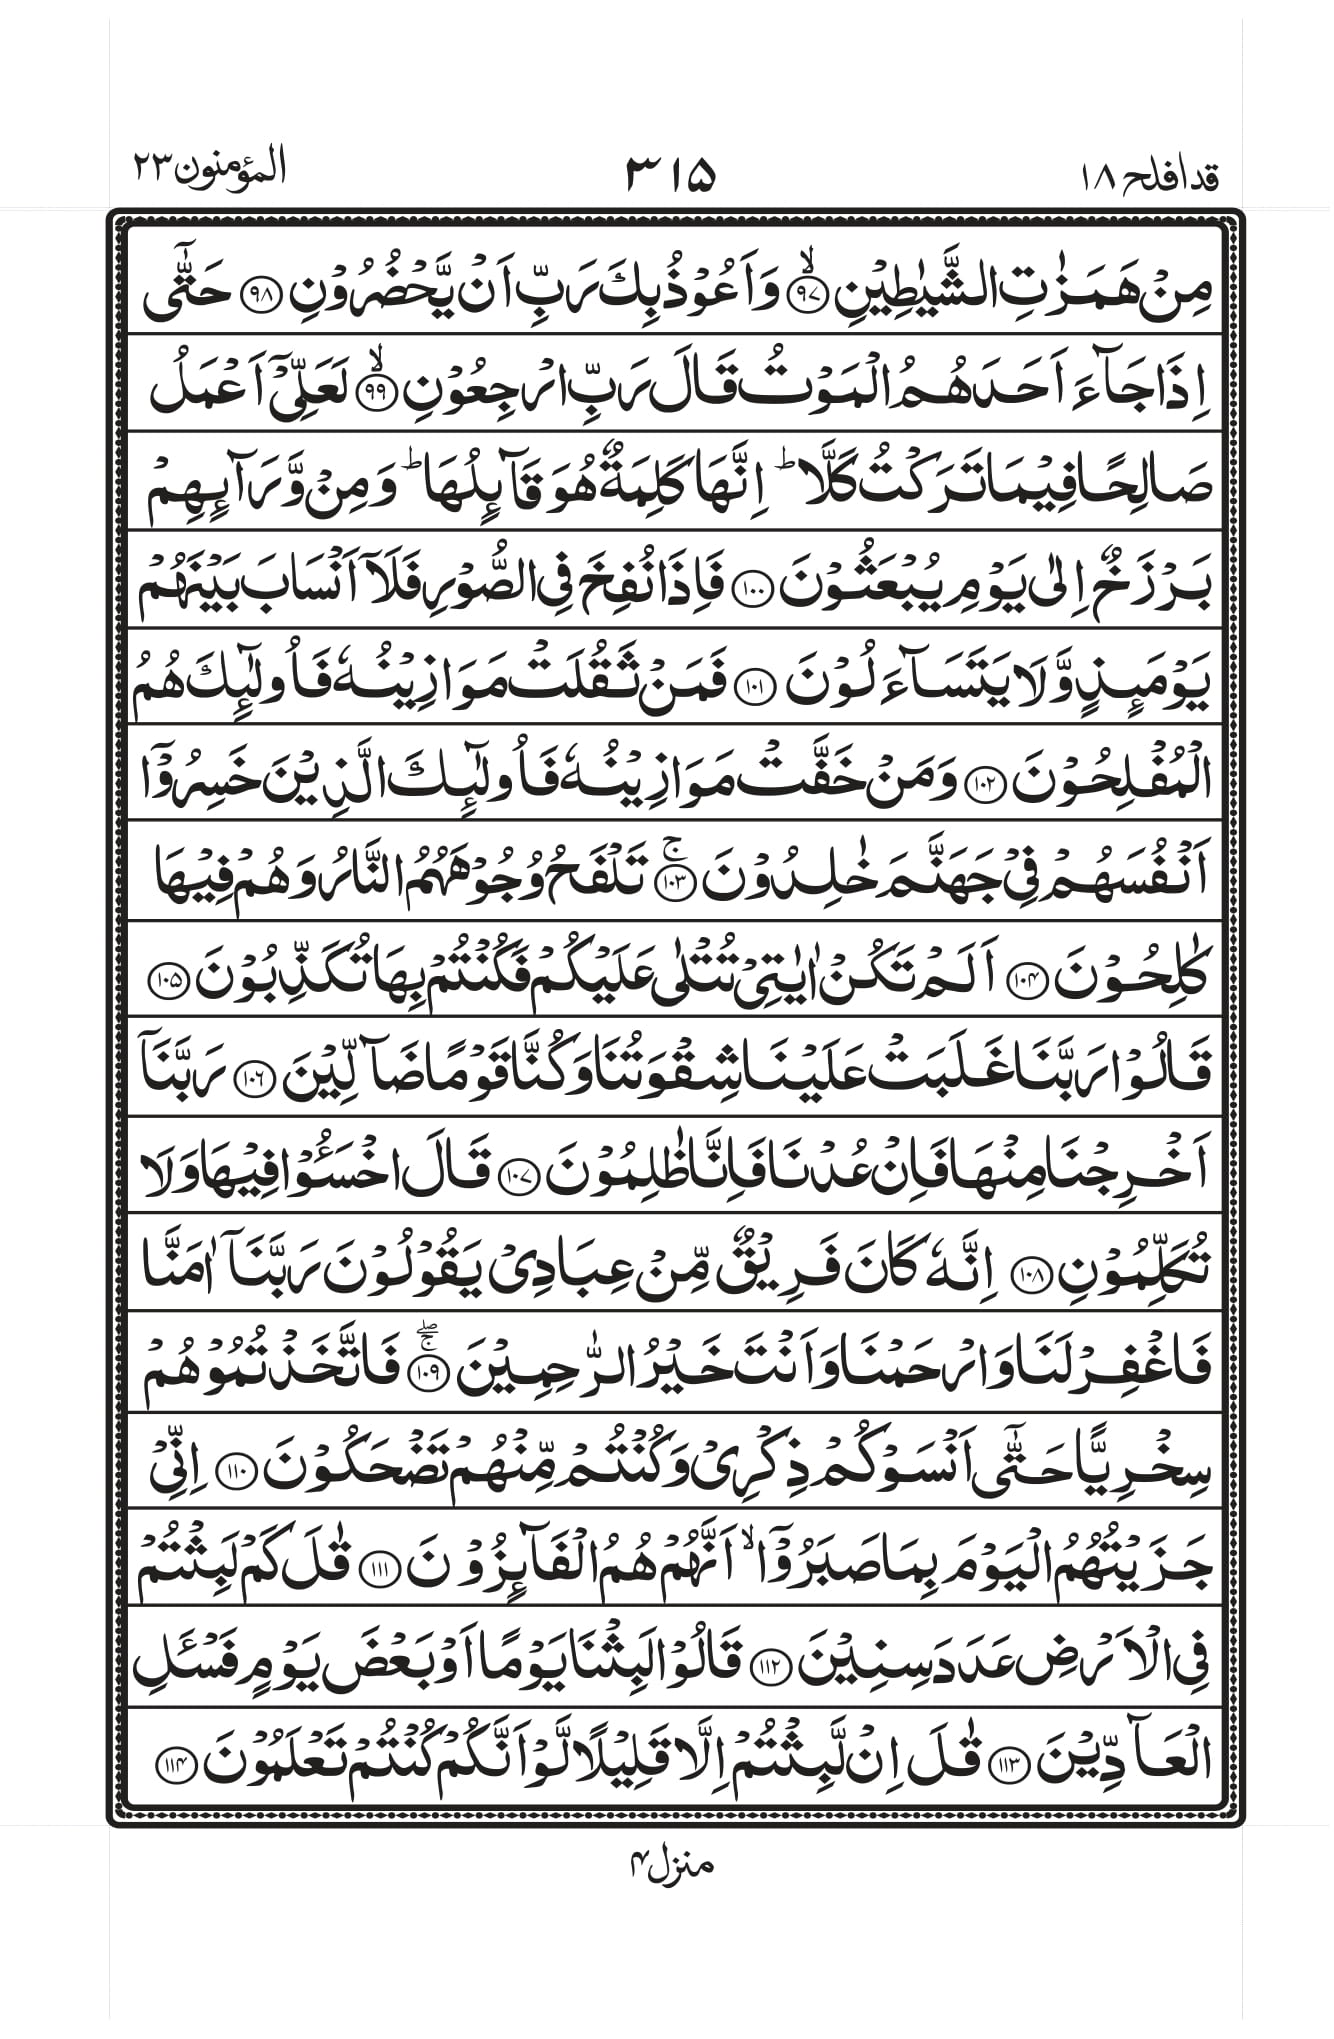 قدافلح ۱۸
۳۱۵
المؤمنون ۲۳
مِنۡ هَمَزٰتِ الشَّيٰطِيۡنِ ۙ‏﴿۹۷﴾ وَاَعُوۡذُ بِكَ رَبِّ اَنۡ يَّحۡضُرُوۡنِ ﴿۹۸﴾ حَتّٰٓى
اِذَا جَآءَ اَحَدَهُمُ الۡمَوۡتُ قَالَ رَبِّ ارۡجِعُوۡنِ ۙ‏﴿۹۹﴾ لَعَلِّىۡۤ اَعۡمَلُ
صَالِحًا فِيۡمَا تَرَكۡتُ كَلَّا ؕ اِنَّهَا كَلِمَةٌ هُوَ قَآٮِٕلُهَا ؕ وَمِنۡ وَّرَآٮِٕهِمۡ
بَرۡزَخٌ اِلٰى يَوۡمِ يُبۡعَثُوۡنَ ﴿۱۰۰﴾ فَاِذَا نُفِخَ فِى الصُّوۡرِ فَلَاۤ اَنۡسَابَ بَيۡنَهُمۡ
يَوۡمَٮِٕذٍ وَّلَا يَتَسَآءَلُوۡنَ ﴿۱۰۱﴾ فَمَنۡ ثَقُلَتۡ مَوَازِيۡنُهٗ فَاُولٰٓٮِٕكَ هُمُ
الۡمُفۡلِحُوۡنَ ﴿۱۰۲﴾ وَمَنۡ خَفَّتۡ مَوَازِيۡنُهٗ فَاُولٰٓٮِٕكَ الَّذِيۡنَ خَسِرُوۡۤا
اَنۡفُسَهُمۡ فِىۡ جَهَنَّمَ خٰلِدُوۡنَ ۚ‏﴿۱۰۳﴾ تَلۡفَحُ وُجُوۡهَهُمُ النَّارُ وَهُمۡ فِيۡهَا
كٰلِحُوۡنَ ﴿۱۰۴﴾ اَلَمۡ تَكُنۡ اٰيٰتِىۡ تُتۡلٰى عَلَيۡكُمۡ فَكُنۡتُمۡ بِهَا تُكَذِّبُوۡنَ ﴿۱۰۵﴾
قَالُوۡا رَبَّنَا غَلَبَتۡ عَلَيۡنَا شِقۡوَتُنَا وَكُنَّا قَوۡمًا ضَآلِّيۡنَ ﴿۱۰۶﴾ رَبَّنَاۤ
اَخۡرِجۡنَا مِنۡهَا فَاِنۡ عُدۡنَا فَاِنَّا ظٰلِمُوۡنَ ﴿۱۰۷﴾ قَالَ اخۡسَـُٔوۡا فِيۡهَا وَلَا
تُكَلِّمُوۡنِ ﴿۱۰۸﴾ اِنَّهٗ كَانَ فَرِيۡقٌ مِّنۡ عِبَادِىۡ يَقُوۡلُوۡنَ رَبَّنَاۤ اٰمَنَّا
فَاغۡفِرۡ لَنَا وَارۡحَمۡنَا وَاَنۡتَ خَيۡرُ الرّٰحِمِيۡنَ ۖۚ‏﴿۱۰۹﴾ فَاتَّخَذۡتُمُوۡهُمۡ
سِخۡرِيًّا حَتّٰٓى اَنۡسَوۡكُمۡ ذِكۡرِىۡ وَكُنۡتُمۡ مِّنۡهُمۡ تَضۡحَكُوۡنَ ﴿۱۱۰﴾ اِنِّىۡ
جَزَيۡتُهُمُ الۡيَوۡمَ بِمَا صَبَرُوۡۤا ۙ اَنَّهُمۡ هُمُ الۡفَآٮِٕزُوۡنَ ﴿۱۱۱﴾ قٰلَ كَمۡ لَبِثۡتُمۡ
فِى الۡاَرۡضِ عَدَدَ سِنِيۡنَ ﴿۱۱۲﴾ قَالُوۡا لَبِثۡنَا يَوۡمًا اَوۡ بَعۡضَ يَوۡمٍ فَسۡـَٔلِ
الۡعَآدِّيۡنَ ﴿۱۱۳﴾ قٰلَ اِنۡ لَّبِثۡتُمۡ اِلَّا قَلِيۡلًا لَّوۡ اَنَّكُمۡ كُنۡتُمۡ تَعۡلَمُوۡنَ ﴿۱۱۴﴾
منزل ۴